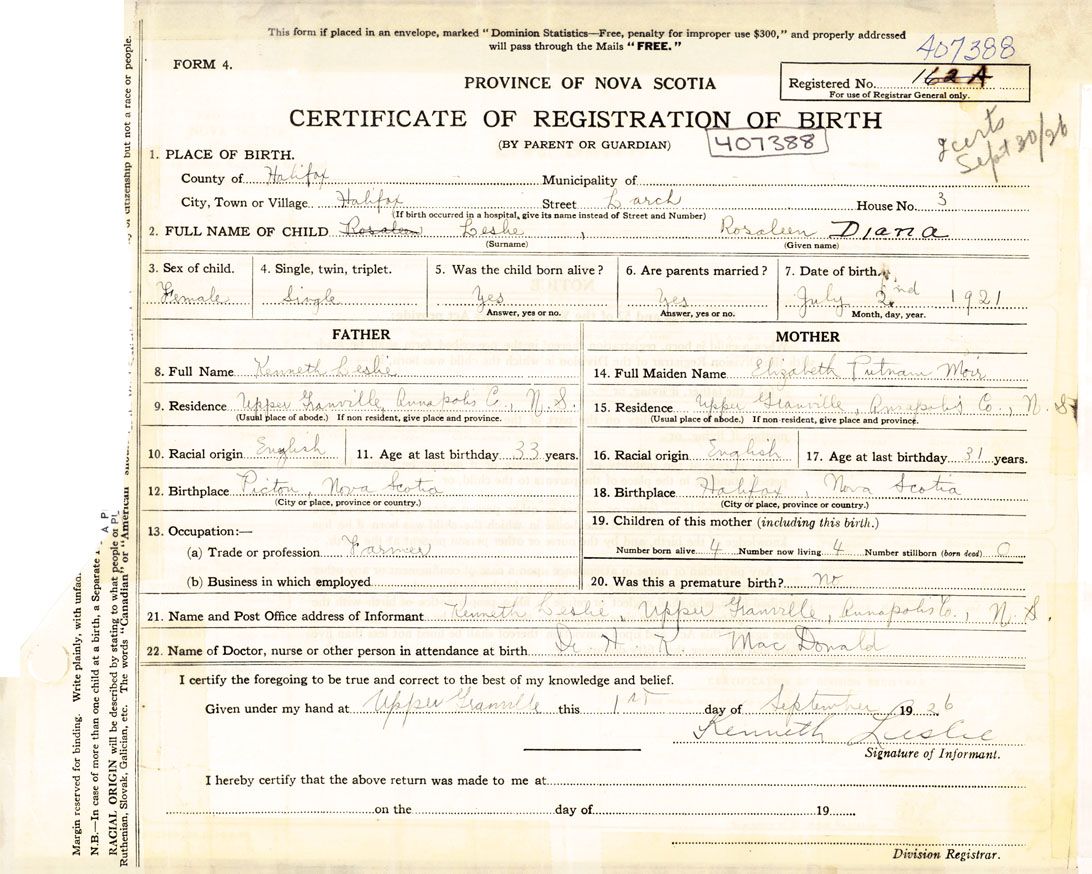 This form if placed in an envelope, marked "Dominion Statistics—Free, penalty for improper use $300," and properly addressed
will pass through the Mails "FREE."
407388
FORM 4.
PROVINCE OF NOVA SCOTIA
Registered No. 162A
For use of Registrar General only.
CERTIFICATE OF REGISTRATION OF BIRTH
(BY PARENT OR GUARDIAN)
407388
Sept 30/26
1. PLACE OF BIRTH.
County of Halifax Municipality of
City, Town or Village Halifax Street Larch House No. 3
(If birth occurred in a hospital, give its name instead of Street and Number)
2. FULL NAME OF CHILD Rosaleen Leslie , Rosaleen Diana
(Surname) (Given name)
3. Sex of child. 4. Single, twin, triplet. 5. Was the child born alive? 6. Are parents married? 7. Date of birth.
Female Single Yes Yes July 2nd 1921
Answer, yes or no. Answer, yes or no. Month, day, year.
FATHER MOTHER
8. Full Name Kenneth Leslie 14. Full Maiden Name Elizabeth Putnam Moir
9. Residence Upper Granville, Annapolis Co., N.S. 15. Residence Upper Granville, Annapolis Co., N.S.
(Usual place of abode.) If non resident, give place and province. (Usual place of abode.) If non-resident, give place and province.
10. Racial origin English 11. Age at last birthday 33 years. 16. Racial origin English 17. Age at last birthday 31 years.
12. Birthplace Pictou, Nova Scotia 18. Birthplace Halifax, Nova Scotia
(City or place, province or country.) (City or place, province or country.)
13. Occupation:— 19. Children of this mother (including this birth.)
(a) Trade or profession Farmer Number born alive 4 Number now living 4 Number stillborn (born dead) 0
(b) Business in which employed 20. Was this a premature birth? no
21. Name and Post Office address of Informant Kenneth Leslie, Upper Granville, Annapolis Co., N.S.
22. Name of Doctor, nurse or other person in attendance at birth. Dr. H. K. MacDonald
I certify the foregoing to be true and correct to the best of my knowledge and belief.
Given under my hand at Upper Granville this 1st day of September 1926
Kenneth Leslie
Signature of Informant.
I hereby certify that the above return was made to me at
on the day of 19
Division Registrar.
Margin reserved for binding. Write plainly, with unfad
N.B.—In case of more than one child at a birth, a Separate
RACIAL ORIGIN will be described by stating to what people or
Ruthenian, Slovak, Galician, etc. The words "Canadian" or "American
citizenship but not a race or people.